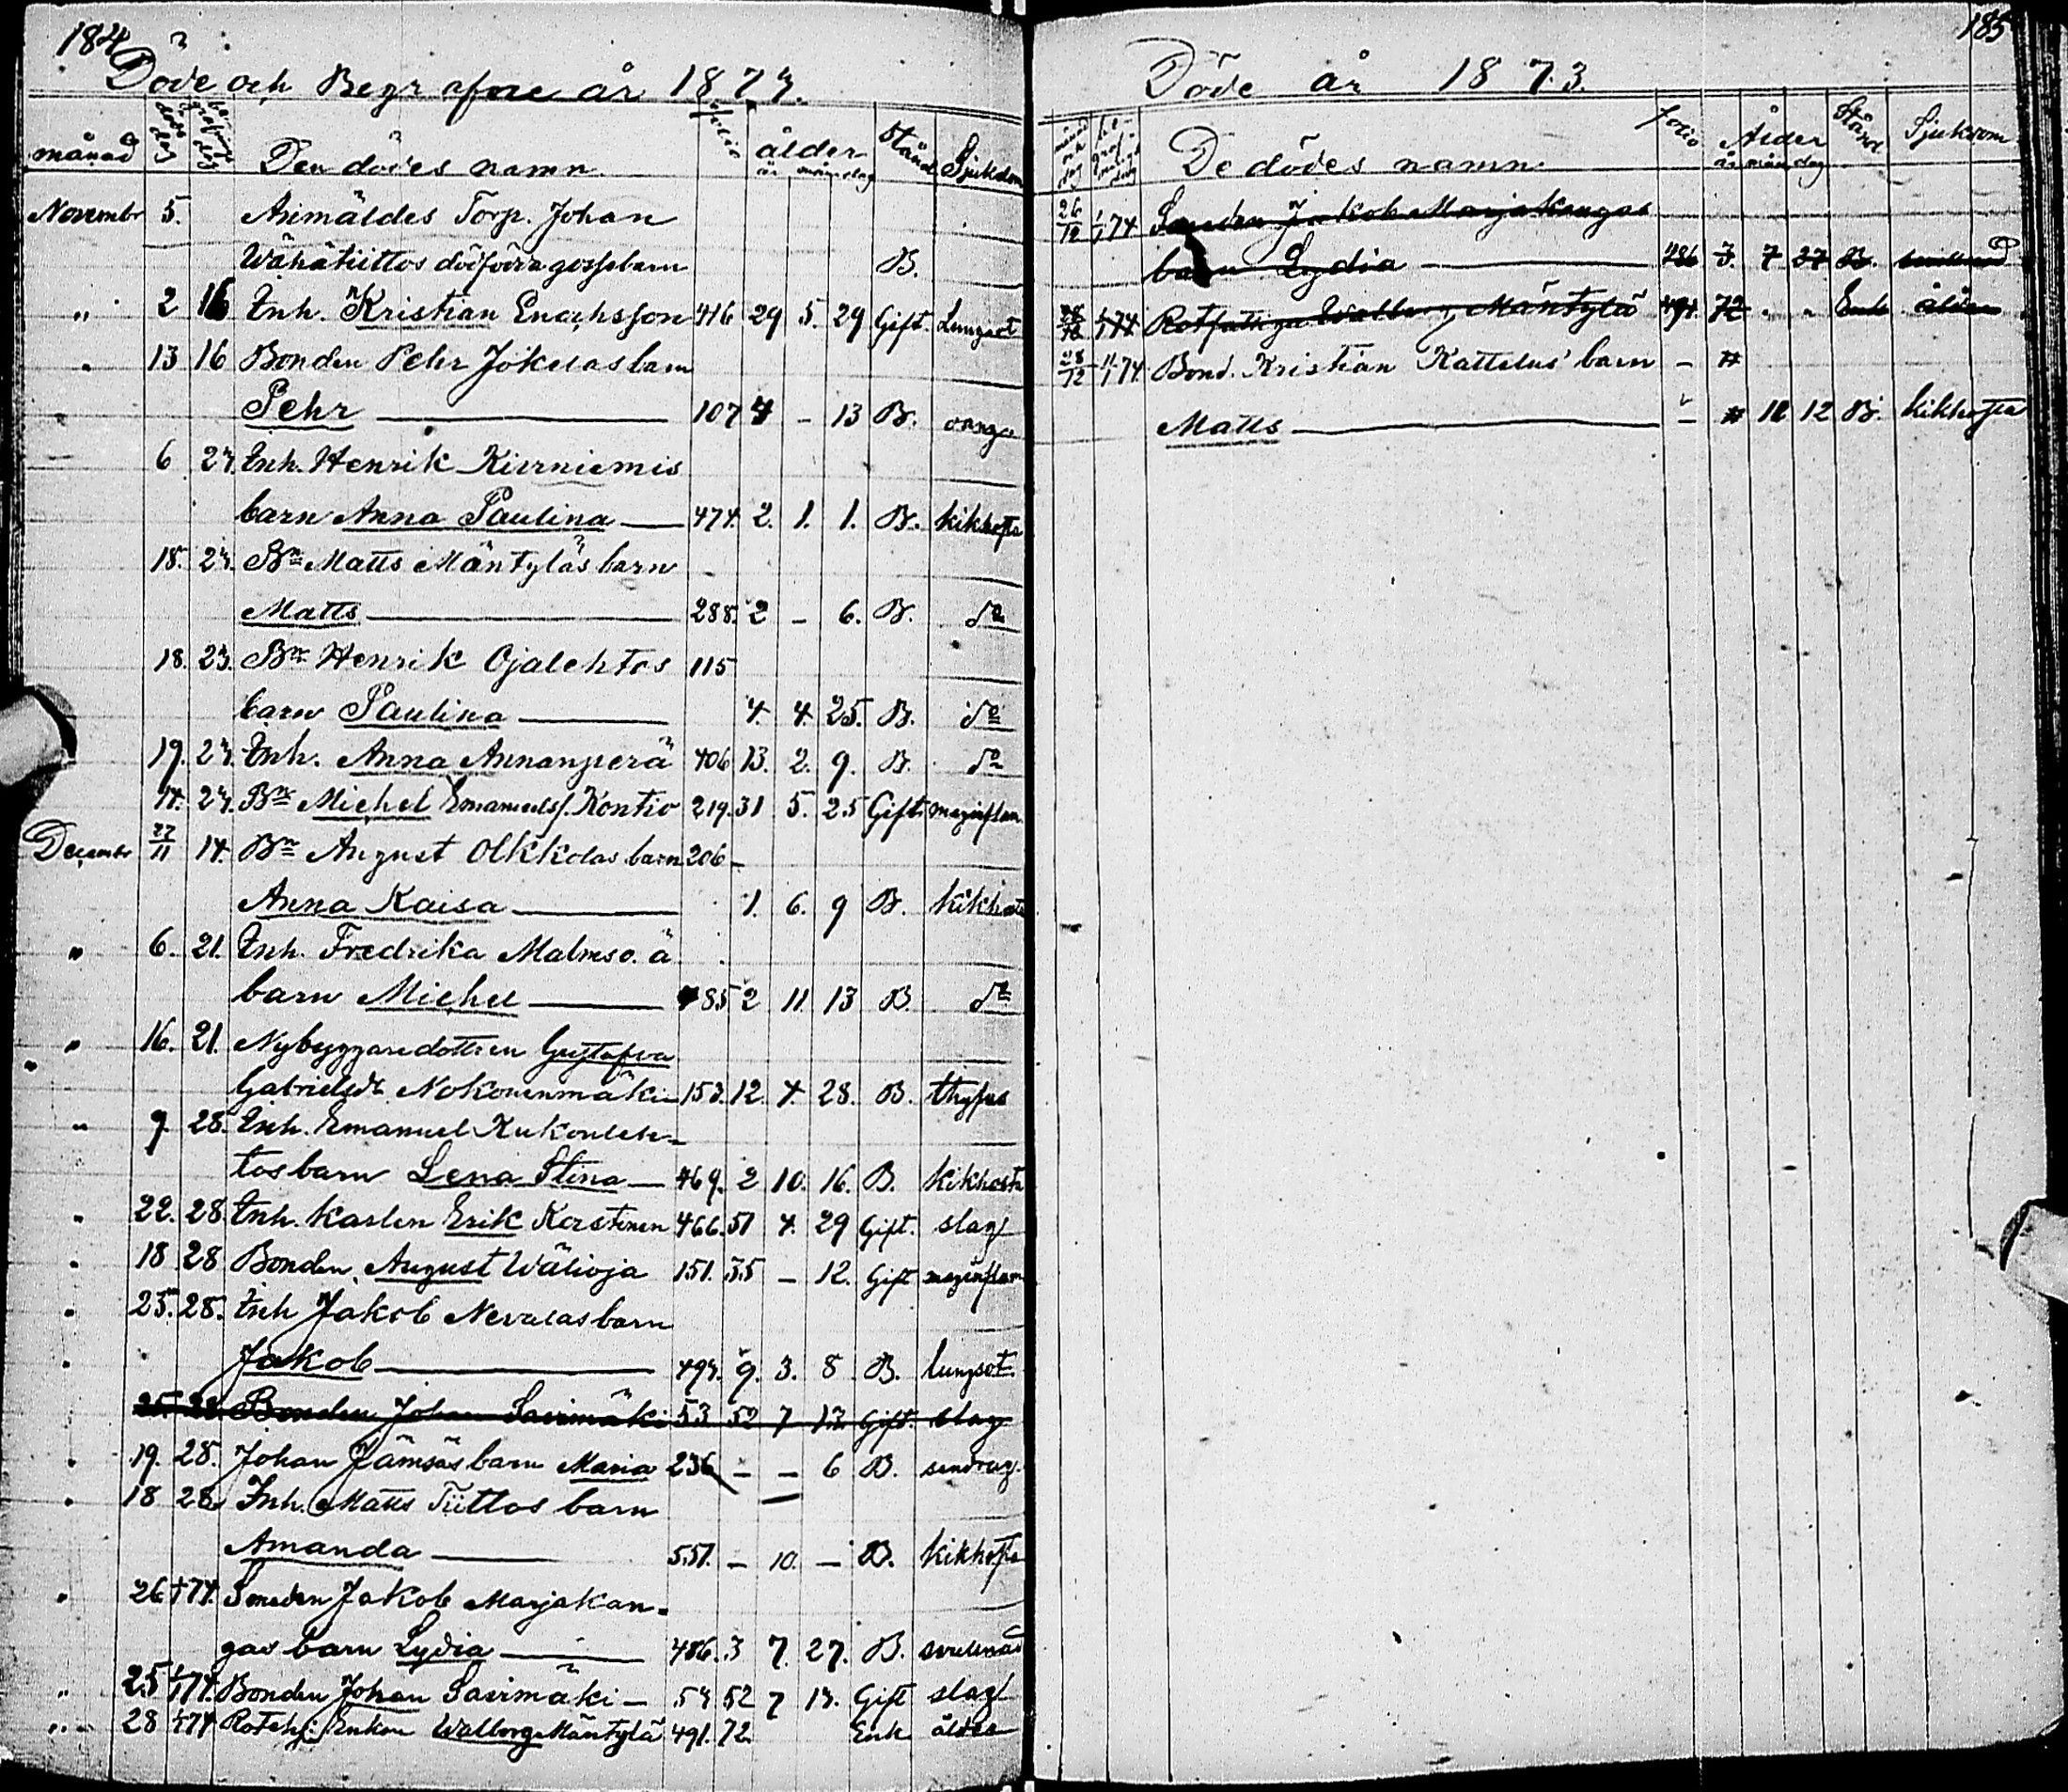 184
Döde och Begrafne år 1873.
månad döds dag begrafnings dag Den dödes namn folio ålder år mån dag Stånd Sjukdom
Novembr 5. Anmäldes Torp. Johan
Wähätiittos dödfödda gossebarn B.
" 2 16 Inh. Kristian Enochsson 416 29 5. 29 Gift. Lungsot
" 13 16 Bonden Pehr Jokelas barn
Pehr 107 4 - 13 B.
6 23. Inh. Henrik Kierniemis
barn Anna Paulina 474. 2. 1. 1. B. kikhosta
18. 23. Bn Matts Mäntyläs barn
Matts 288. 2 - 6. B. do
18. 23. Bn Henrik Ojalehtos 115
barn Paulina 4. 4 25. B. do
19. 23. Inh. Anna Annanperä 406 13. 2. 9. B. do
14. 23. Bn Michel Emanuelsf. Kontio 219. 31 5. 25 Gift maginflam.
Decembr 27/11 14. Bn August Olkkolas barn 206
Anna Kaisa 1. 6. 9 B. kikhosta
" 6. 21. Inh. Fredrika Malmso. ä
barn Michel 485 2 11. 13 B. do
" 16. 21. Nybyggaredottren Gustafva
Gabrielsdr Nokonenmäki 153. 12. 4. 28. B. thyfus
" 9. 28. Inh. Emanuel Kukonleh-
tos barn Lena Stina 469. 2 10. 16. B. kikhosta
" 22. 28. Inh. karlen Erik Kerstinen 466. 51 4. 29 Gift. slag
" 18 28 Bonden August Wälioja 151. 35 - 12. Gift maginflam
" 25. 28. Inh Jakob Nevalas barn
" Jakob 493. 9. 3. 8 B. lungsot.
25. 28. Bonden Johan Savimäki 53. 52 7 13. Gift. slag
" 19. 28. Johan Jämsäs barn Maria 236 - - 6 B. sendrag.
" 18 28. Inh. Matts Tiittos barn
Amanda 551. - 10. - B. kikhosta
" 26 74. Smeden Jakob Marjakan-
gas barn Lydia 486. 3 7. 27. B.
" 25 74. Bonden Johan Savimäki - 53 52 7 13. Gift slag
" 28 74 Rotehj. Enkan Walborg Mäntylä 491. 72. Enk. ålder
185
Döde år 1873.
månad och dag begrafnings dag De dödes namn folio Ålder år mån dag Stånd Sjukdom
26/12 1/74 Smeden Jakob Marjakangas
barn Lydia 486 3. 7 27 B.
28/12 1/74 Rotfattiga Walborg Mäntylä 491. 72 " " Enk ålder
28/12 11/1 74 Bond. Kristian Kattelus' barn -
Matts - 11 12 B. kikhosta